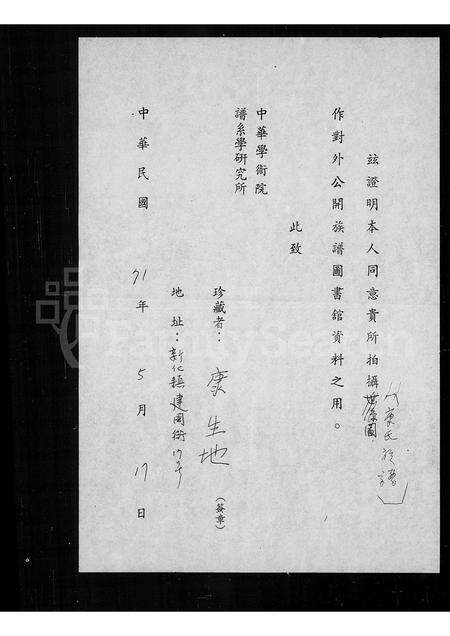 玆證明本人同意貴所拍攝世係圖
康氏族譜
作對外公開族譜圖書館資料之用。
此致
中華學術院
譜系學研究所
珍藏者：康生地（簽章）
地址：新化鎮建國街17号
中華民國71年5月17日
FamilySearch